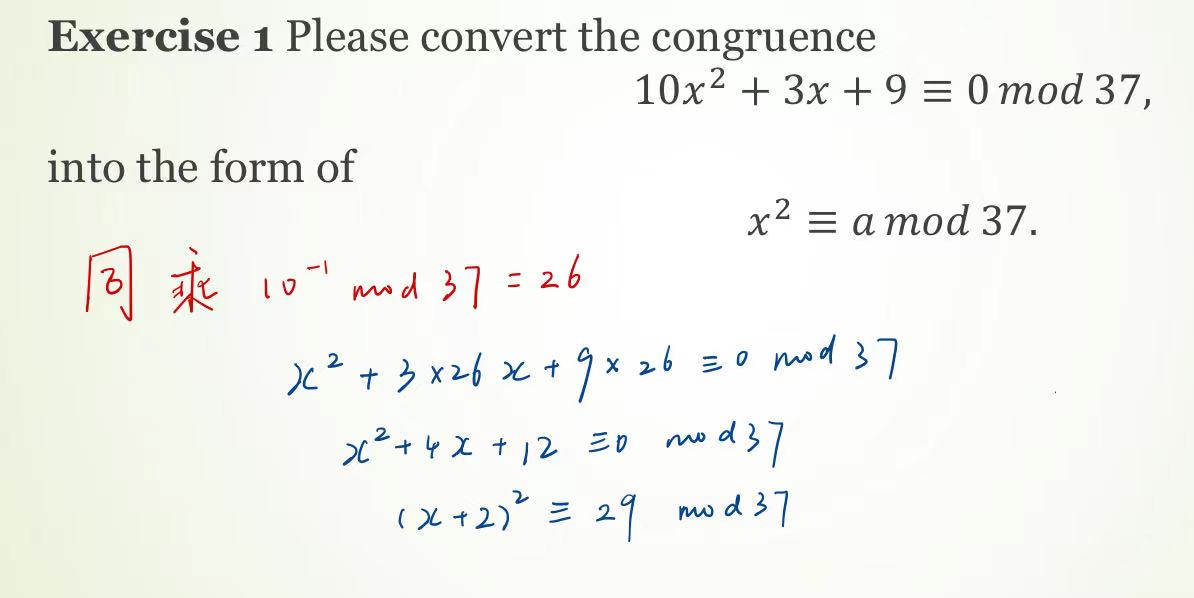 Exercise 1 Please convert the congruence
10x² + 3x + 9 ≡ 0 mod 37,
into the form of
x² ≡ a mod 37.
同乘 10⁻¹ mod 37 = 26
x² + 3×26x + 9×26 ≡ 0 mod 37
x² + 4x + 12 ≡ 0 mod 37
(x+2)² ≡ 29 mod 37